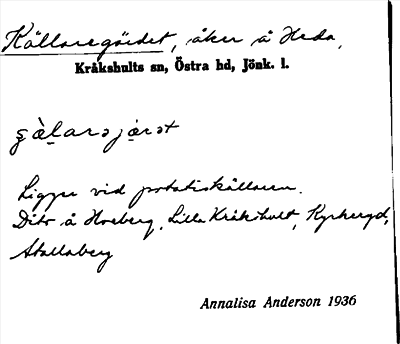 Källaregärdet, åker å Heda,
Kråkshults sn, Östra hd, Jönk. l.
Ligger vid potatiskällaren.
Dito å Hoeberg, Lilla Kråkshult, Kyrkergd,
Stallaberg
Annalisa Anderson 1936